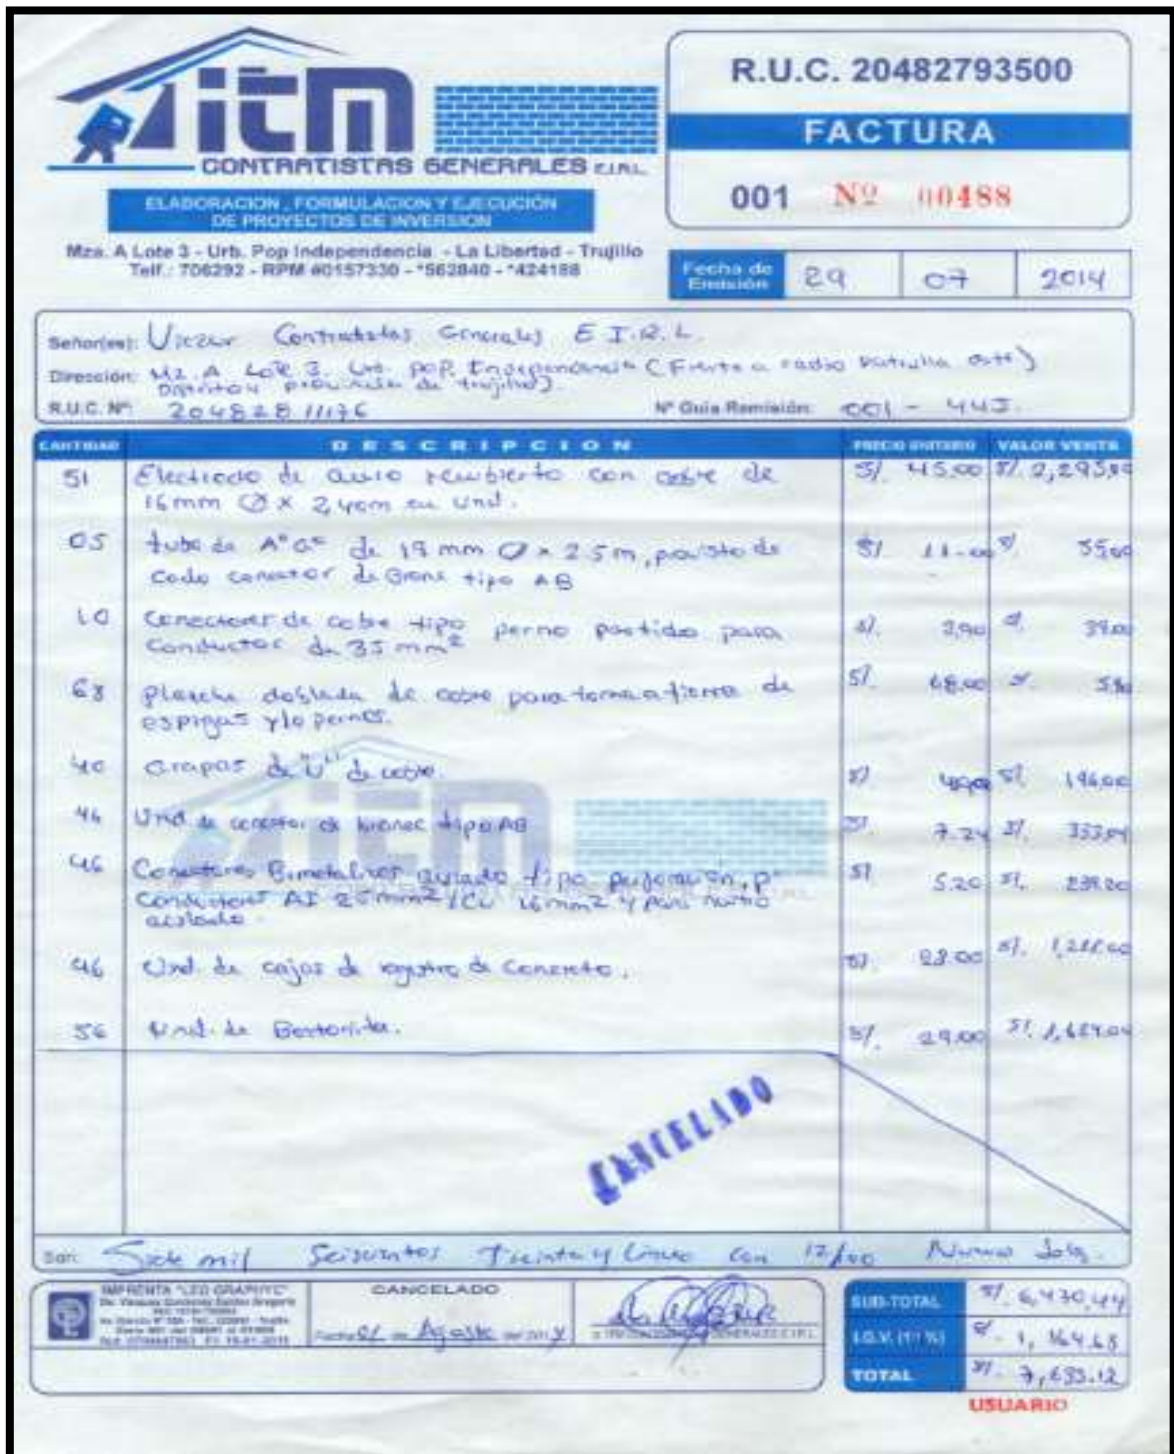 itm
CONTRATISTAS GENERALES E.I.R.L.
ELABORACION, FORMULACION Y EJECUCIÓN
DE PROYECTOS DE INVERSION
Mza. A Lote 3 - Urb. Pop Independencia - La Libertad - Trujillo
Telf.: 706292 - RPM #0157330 - *562840 - *424188
R.U.C. 20482793500
FACTURA
001 Nº 00488
Fecha de Emisión 29 07 2014
Señor(es): Contratistas Generales E.I.R.L.
Dirección: Mz. A Lote 3. Urb. POP. Independencia (Frente a radio Patrulla
Distrito y provincia de trujillo).
R.U.C. Nº: 20482811176 Nº Guia Remisión: 001 -
CANTIDAD DESCRIPCION PRECIO UNITARIO VALOR VENTA
51 Electrodo de recubierto con cobre de S/. 45.00 S/. 2,295.00
16mm Ø x 2,40m en Und.
05 tubo de AºGº de 19 mm Ø x 2.5m, provisto de S/. 11.00 S/. 55.00
codo conector de Bronc tipo AB
10 Conectores de cobre tipo perno partido para S/. 3,90 S/. 39.00
Conductor de 35 mm²
68 Plancha doblada de cobre para toma a tierra de S/. S/.
espigas y/o pernos.
40 Grapas de "U" de cobre. S/. S/. 196.00
46 Und. de conector de bronce tipo AB S/. 7.24 S/. 333.04
46 Conectores Bimetalicos tipo perforación, p' S/. 5.20 S/. 239.20
Conductores Al 25mm²/Cu 16mm² y para
46 Und. de cajas de registro de Concreto. S/. 28.00 S/. 1,288.00
56 Und. de Bentonita. S/. 29.00 S/.
CANCELADO
Son: Siete mil Seiscientos Treinta y Cinco con 12/100 Nuevos Soles.
IMPRENTA "LEO GRAPHYC"
CANCELADO
Fecha 01 de Agosto de 201
SUB-TOTAL S/. 6,470,44
I.G.V. S/. 1,164.68
TOTAL S/. 7,635.12
USUARIO